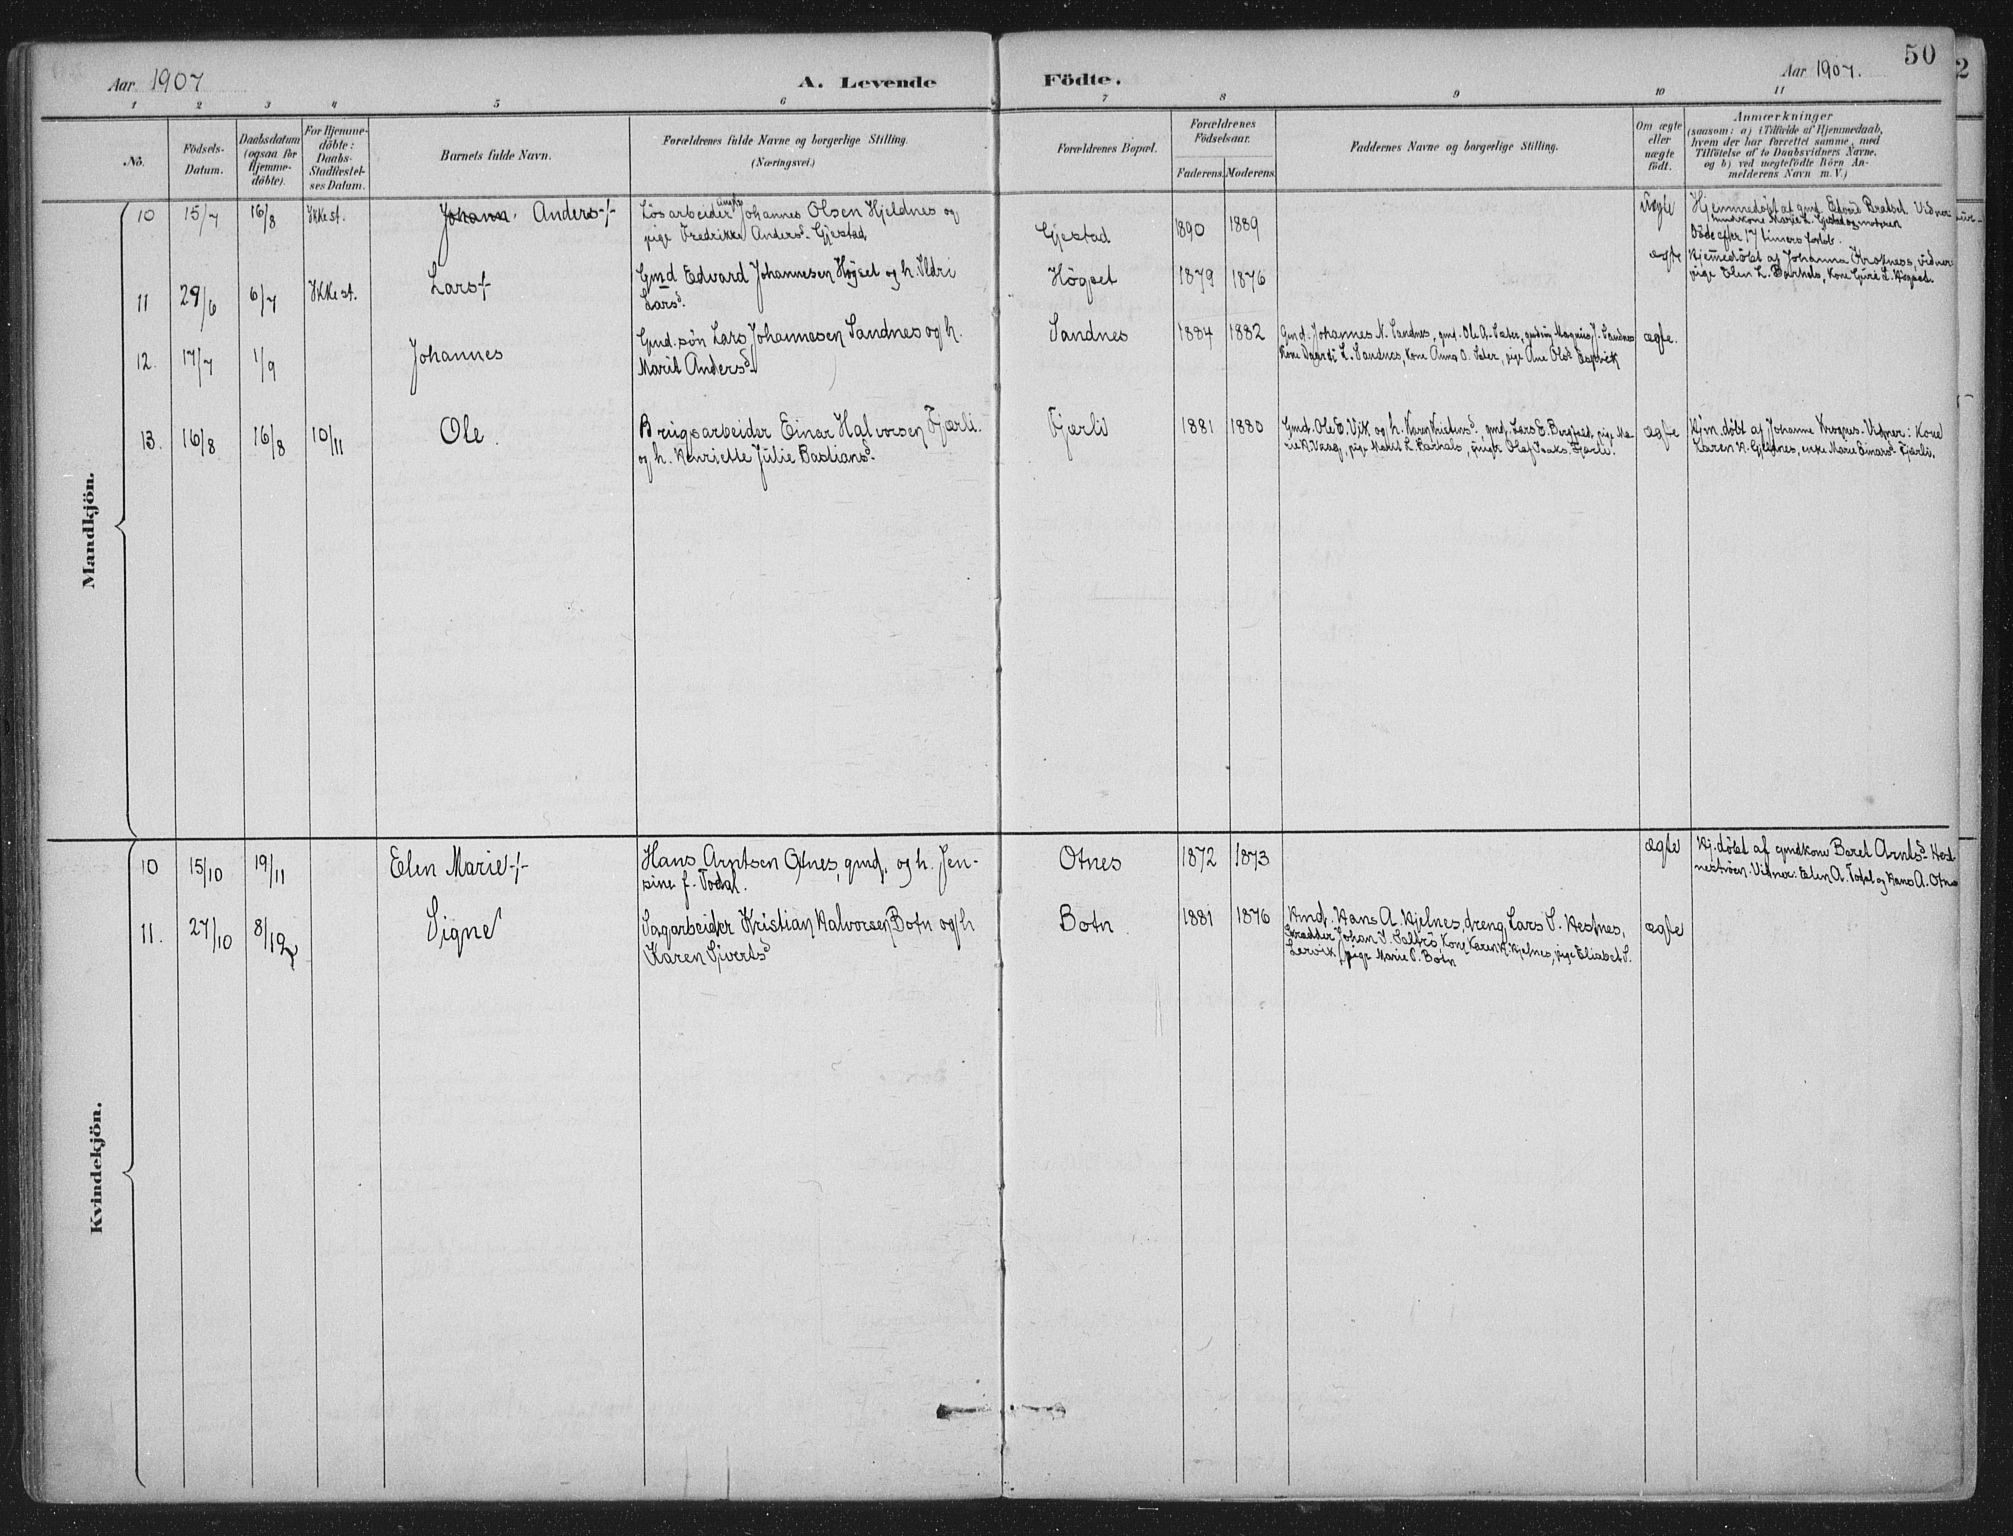 50
Aar 1907
A. Levende
Födte.
Aar 1907.
1 2 3 4 5 6 7 8 9 10 11
No.
Födsels-
Datum.
Daabsdatum
(ogsaa for
Hjemme-
döbte).
For Hjemme-
döbte:
Daabs-
Stadfæstel-
ses Datum.
Barnets fulde Navn.
Forældrenes fulde Navne og borgerlige Stilling.
(Næringsvei.)
Forældrenes Bopæl.
Forældrenes
Födselsaar.
Faderens. Moderens.
Faddernes Navne og borgerlige Stilling.
Om ægte
eller
uægte
födt.
Anmærkninger
(saasom: a) i Tilfælde af Hjemmedaab,
hvem der har forrettet samme, med
Tilföielse af to Daabsvidners Navne,
og b) ved uægtefödte Börn An-
melderens Navn m. V.)
Mandkjön.
10 15/7 16/8 Ikke st. Johann. Anders -/-
Lösarbeider ungkar Johannes Olsen Hjeldnes og
pige Fredrikke Andersd. Gjestad
Gjestad 1890 1889
Uægte
Hjemmedöbt af gmd. Edvard Bratset. Vidner:
Döde efter 17 timers forlöb.
11 29/6 6/7 Ikke st. Lars -/-
Gmd Edvard Johannesen Högset og h. Ildri
Larsd.
Högset 1879 1876
ægte
Hjemmedöbt af Johanna Krokness, vidner:
pige Elen L. Barhals, kone Guré L. Högset.
12. 17/7 1/9 Johannes
Gmd. sön Lars Johannesen Sandnes og h.
Marit Andersd.
Sandnes 1884 1882
Gmd. Johannes N. Sandnes, gmd. Ole A. Sæter, gmdsön Magnus J. Sandnes
Kone L. Sandnes, kone Anna O. Sæter, pige Ane Olsd. Espvick
ægte.
13. 16/8 16/8 10/11 Ole.
Brugsarbeider Einar Halvorsen Fjærli.
og h. Henriette Julie Bastiansd.
Fjærli 1881 1880
Gmd. Ole E. Vik og h. Karen Kristensd. gmd. Lars E. Bergfald, pige Ma-
rie K. Vaag, pige Marit L. Barhals, Olaf Isaks. Fjærli.
ægte
Hjm. döbt af Johanne Krognes. Vidner: Kone
Karen K. Gjeldnes, enke Marie Einarsd. Fjærli.
Kvindekjön.
10 15/10 19/11 Elen Marie -/-
Hans Arntsen Otnes, gmd. og h. Jen-
sine f. Todal.
Otnes 1872 1873
ægte
Hj. döbt af gmdkone Beret Arntsd. Hest-
neströen. Vidner: Elen A. Todal og Hans A. Otnes
11. 27/10 8/12 Signe
Sagarbeider Kristian Halvorsen Botn og h
Karen Sivertsd
Botn 1881 1876
Hmd. Hans A. Hjelnes, dreng Lars S. Hestnes,
Skrædder Johan I. Saltrö, Kone Karen K. Hjelnes, pige Eliabet S.
Lervik, pige Marie P. Botn
ægte